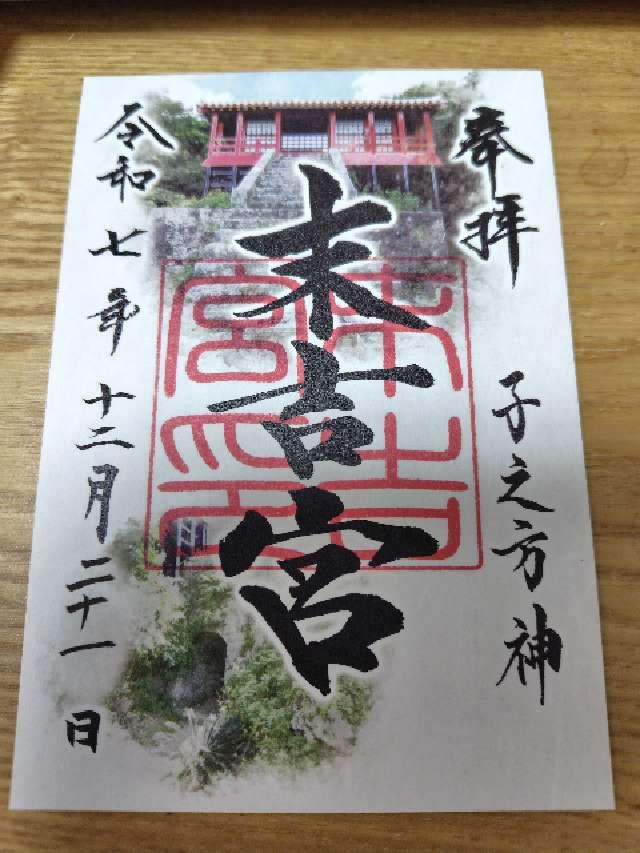 奉拝
子之方神
末吉宮
末吉宮印
令和七年十二月二十一日